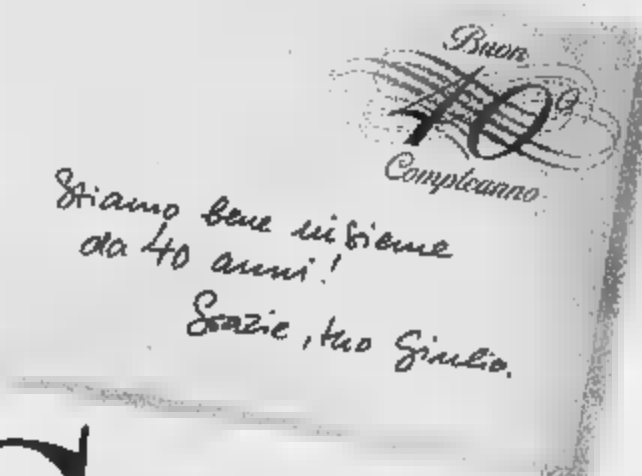 Buon
40°
Compleanno
Stiamo bene insieme
da 40 anni!
Grazie, tuo Giulio.